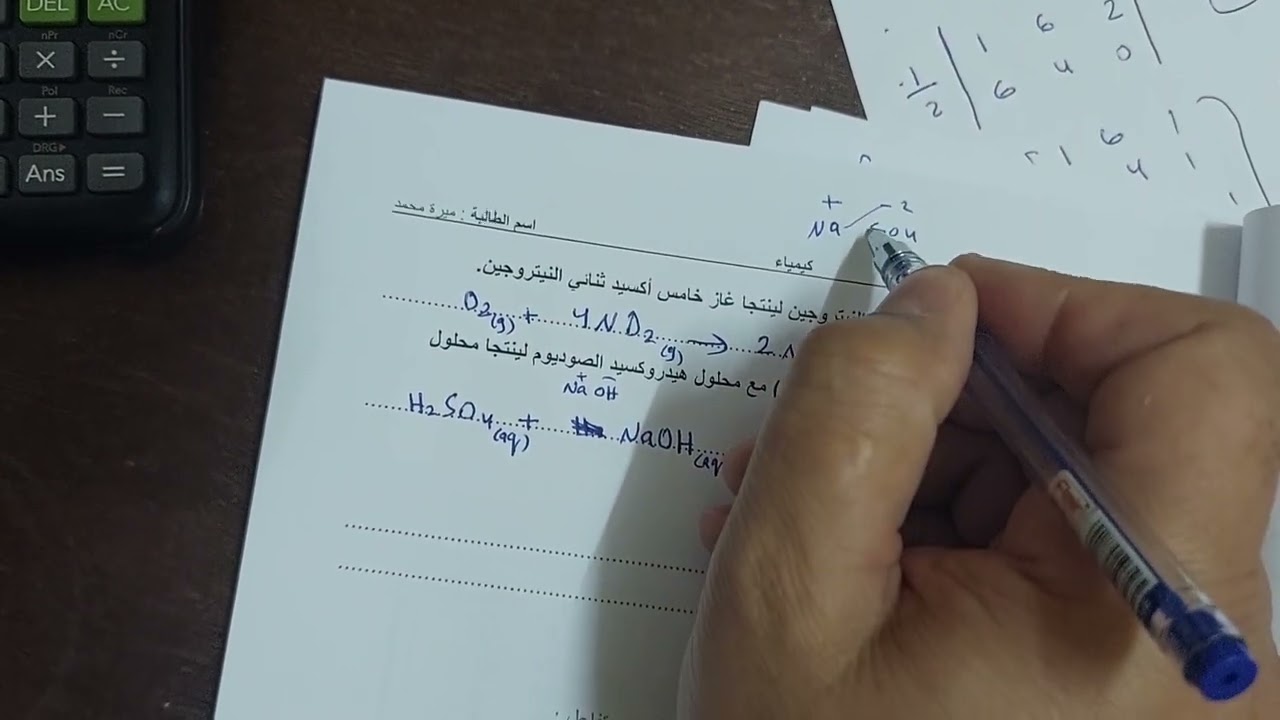 DEL AC
nPr nCr
× ÷
Pol Rec
+ −
DRG▶
Ans =
1 6 2
1/2 6 4 0
1 6 1
4 1
+ - 2
Na SO4
اسم الطالبة : ميرة محمد
كيمياء
النيتروجين لينتجا غاز خامس أكسيد ثنائي النيتروجين.
O2(g) + 4NO2(g) → 2
) مع محلول هيدروكسيد الصوديوم لينتجا محلول
Na+ OH−
H2SO4(aq) + NaOH(aq